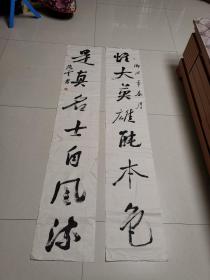 惟大英雄能本色
是真名士自风流